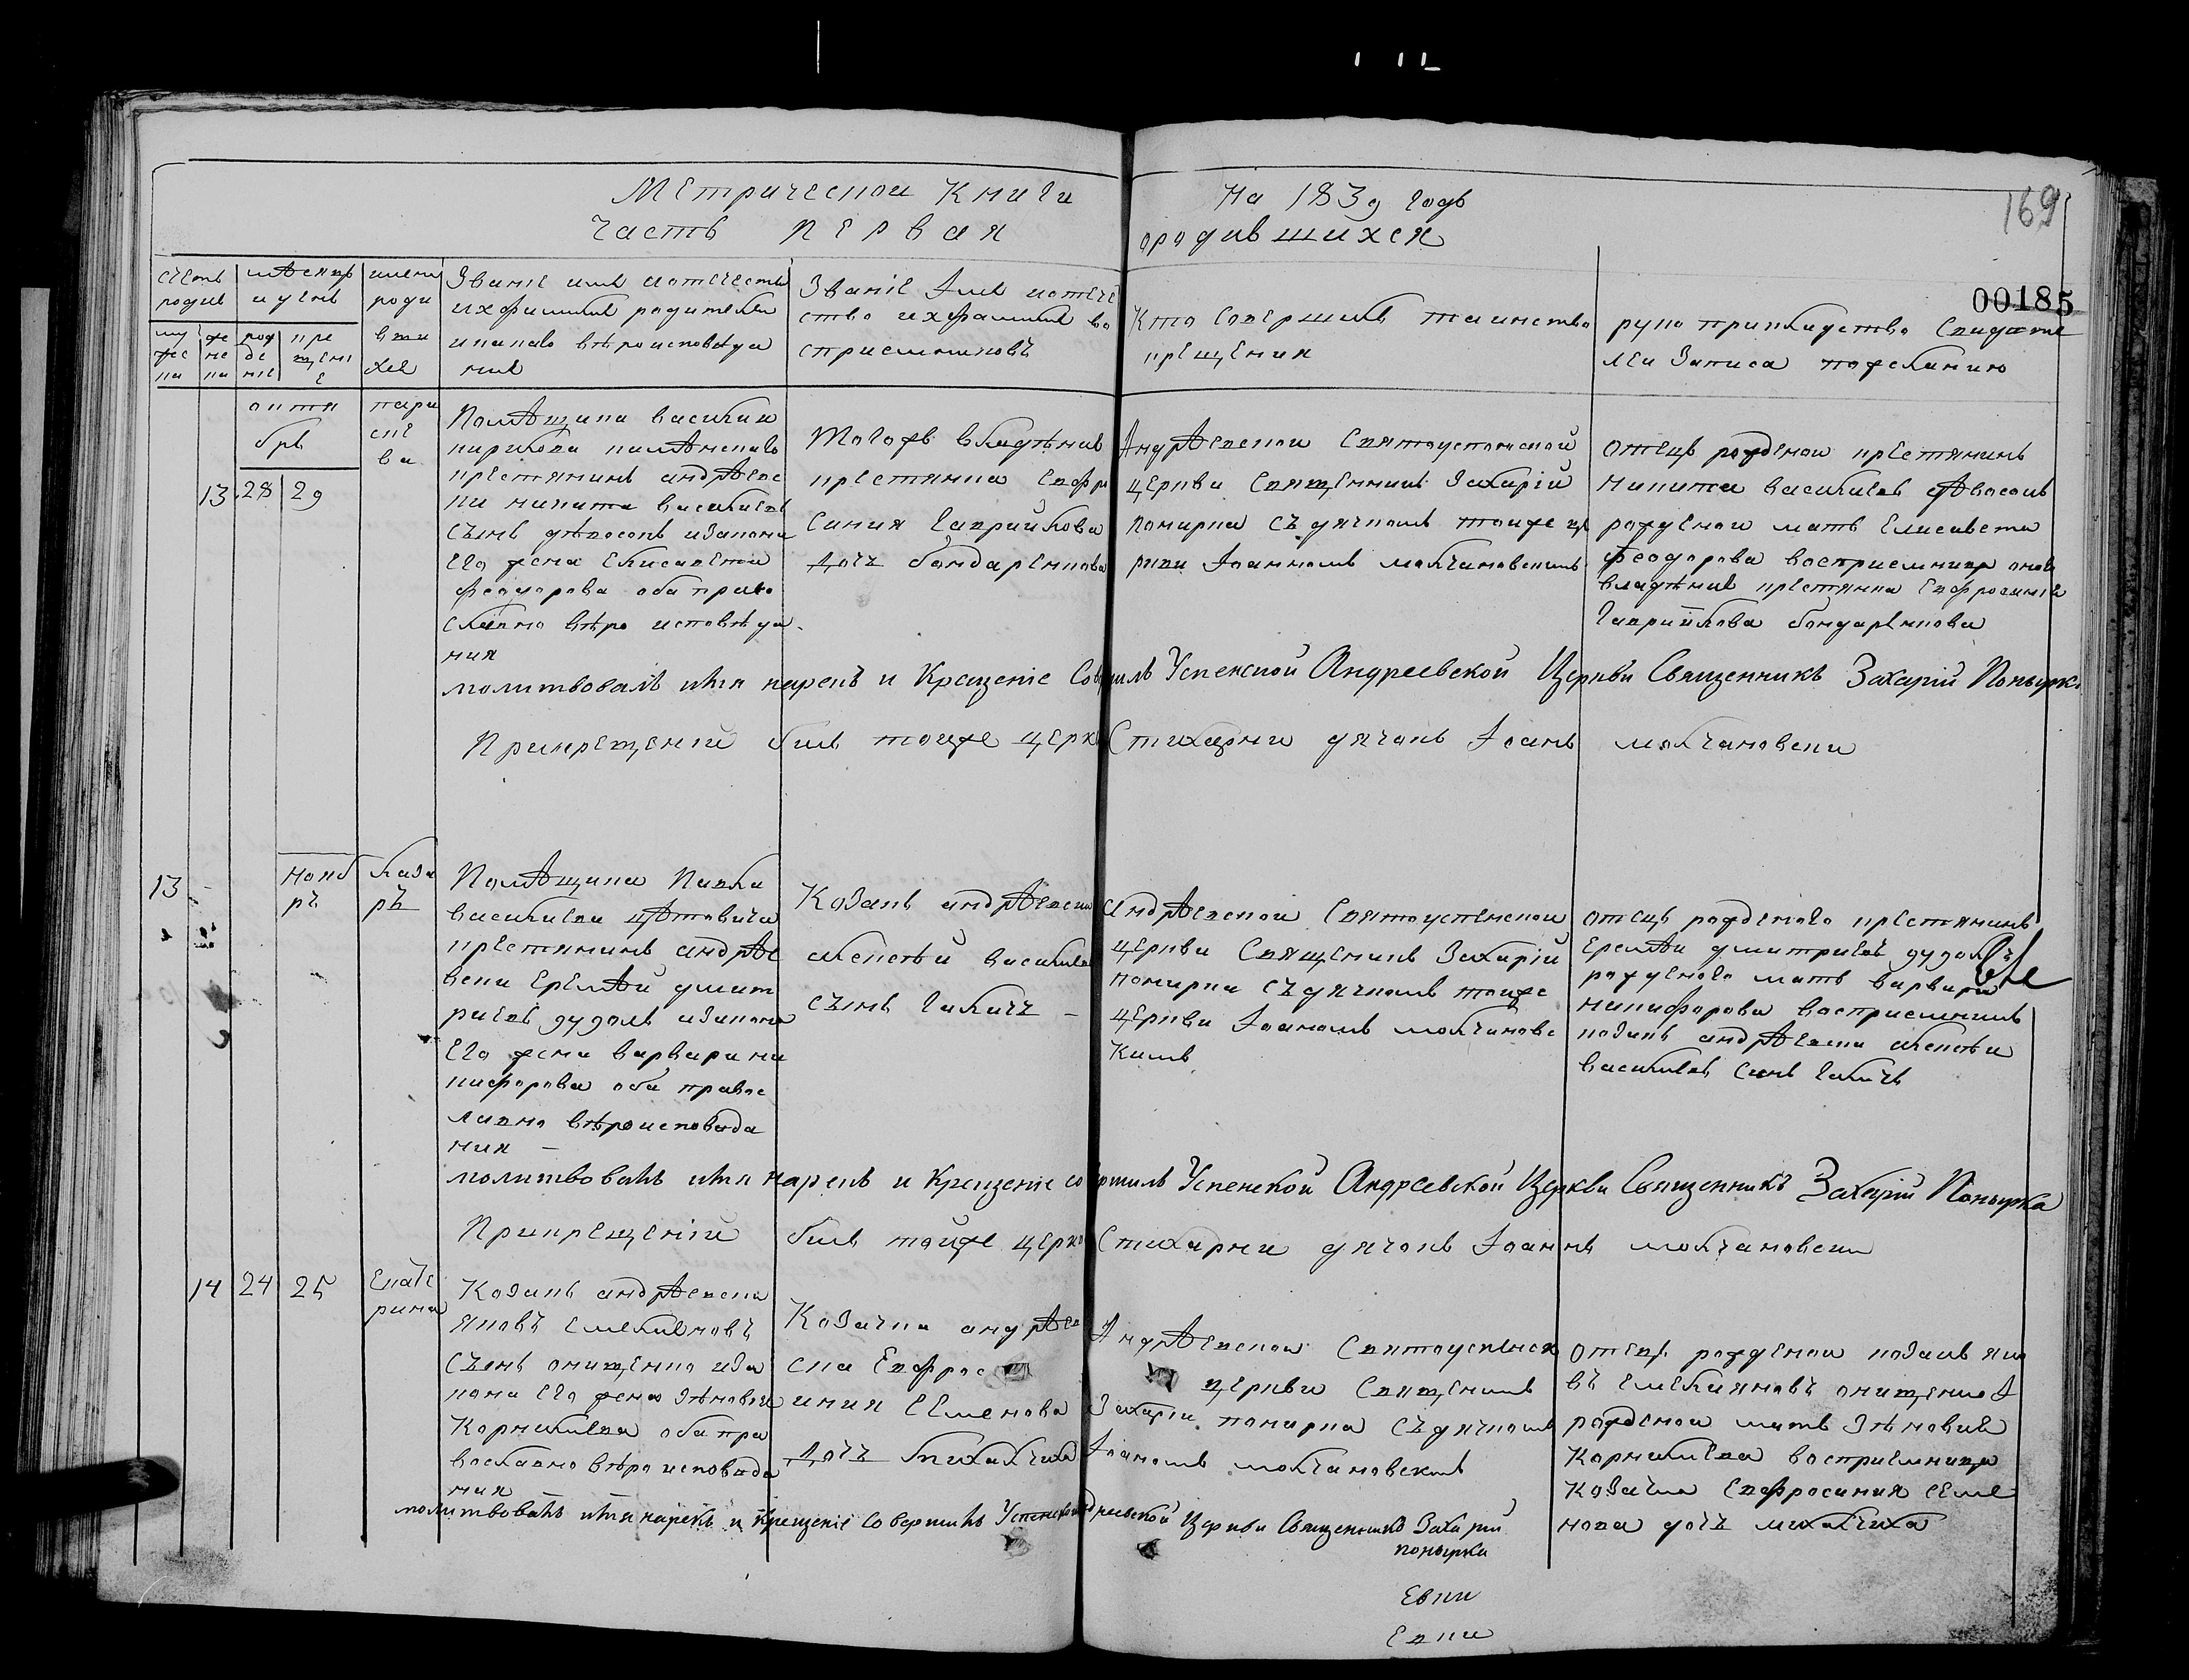 Метрической Книги
На 1839 годъ
169
часть первая
ородившихся
00185
счетъ родив
мѣсяцъ и день
имени роди
Званіе имя иотечество
ихфамилия родителей
икакаго вѣроисповѣда
ния
Званіе Імя иотече
ство ихфамилия во
сприемниковъ
Кто Совершилъ таинство
крещения
руко прикладство Свидѣте
лей Записа пожеланию
му
жес
ка
же
не
ка
рож
де
ние
кре
щені
е
октя
брь
13
28
29
пара
ске
ва
Помѣщика василия
кирилова
крестянинъ андрѣевс
ки никита василиевъ
сынъ изаконая
Его жена Елисавета
феодорова оба право
славно вѣро исповѣда
ния
Тогожъ владѣния
крестянка Евфро
синия гаврийлова
дочъ бондаренкова
Андрѣевской Святоуспенской
церкви Священникъ Захарій
понирка съ дячкомъ тоиже це
ркви Іоанномъ молчановскимъ
отецъ рожденой крестянинъ
никита василиевъ
рожденой мать Елисавета
феодорова восприемница оного
владѣния крестянка Евфросиния
гаврийлова бондаренкова
молитвовалъ имя нарекъ и Крещеніе Совершилъ Успенской Андреевской Церкви Священникъ Захарій Понырка
Прикрещеніи билъ тоиже церкви Стихарни дячокъ Іоанъ молчановски
13
нояб
ръ
Лаза
ръ
Помѣщика Павла
василиева
крестянинъ андрѣе
вски Еремѣй дмит
риевъ дудолъ изаконая
Его жена варвара ни
кифорова оба правос
лавно вѣроисповѣда
ния
Козакъ андрѣевски
алексѣй василиевъ
сынъ галичъ
Андрѣевской Святоуспенской
церкви Священикъ Захарій
понирка съ дячкомъ тоиже
церкви Іоаномъ молчановс
кимъ
отецъ рожденого крестянинъ
Еремѣи дмитриевъ дудолъ
рожденого мать варвара
никифорова восприемникъ
козакъ андрѣевски алексѣи
василиевъ синъ галичъ
молитвовалъ имя нарекъ и Крещеніе совершилъ Успенской Андреевской Церкви Священникъ Захарій Понырка
Прикрещеніи билъ тойже церкви Стихарни дячокъ Іоаннъ молчановски
14
24
25
Екате
рина
Козакъ андрѣевски
яковъ Емелияновъ
сынъ онищенко иза
кона Его жена Зѣновия
Корнилиева оба пра
вославно вѣро исповѣда
ния
Козачка андрѣев
ска Евфрос
иния Семенова
дочъ михалчиха
Андрѣевской Святоуспенск
церкви Священикъ
Захаріи понирка съ дячкомъ
Іоаномъ молчановскимъ
отецъ рожденой козакъ яко
въ Емелияновъ онищенко
рожденой мать Зѣновия
Корнилиева восприемница
Козачка Евфросиния Семе
нова дочъ михалчиха
молитвовалъ имя нарекъ и крещеніе Совершилъ Успенской Андреевской Церкви Священникъ Захарій
понырка